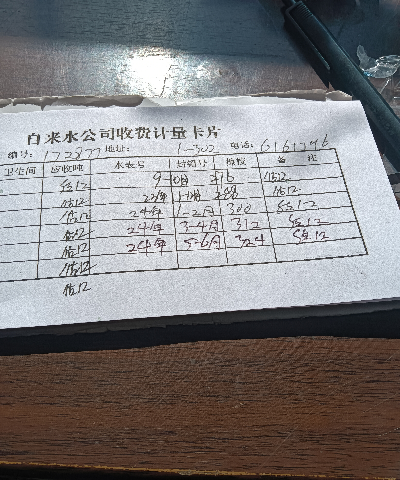 自来水公司收费计量卡片
编号: 172877 地址: 1-302 电话: 6161296
卫生间 应收吨 水表号 铅销号 般数 备 注
估12 9 10月 276 估12
估12 23年 288 估12
估12 24年 1-2月 300 估12
估12 24年 3-4月 312 估12
估12 24年 5-6月 324 估12
估12
估12